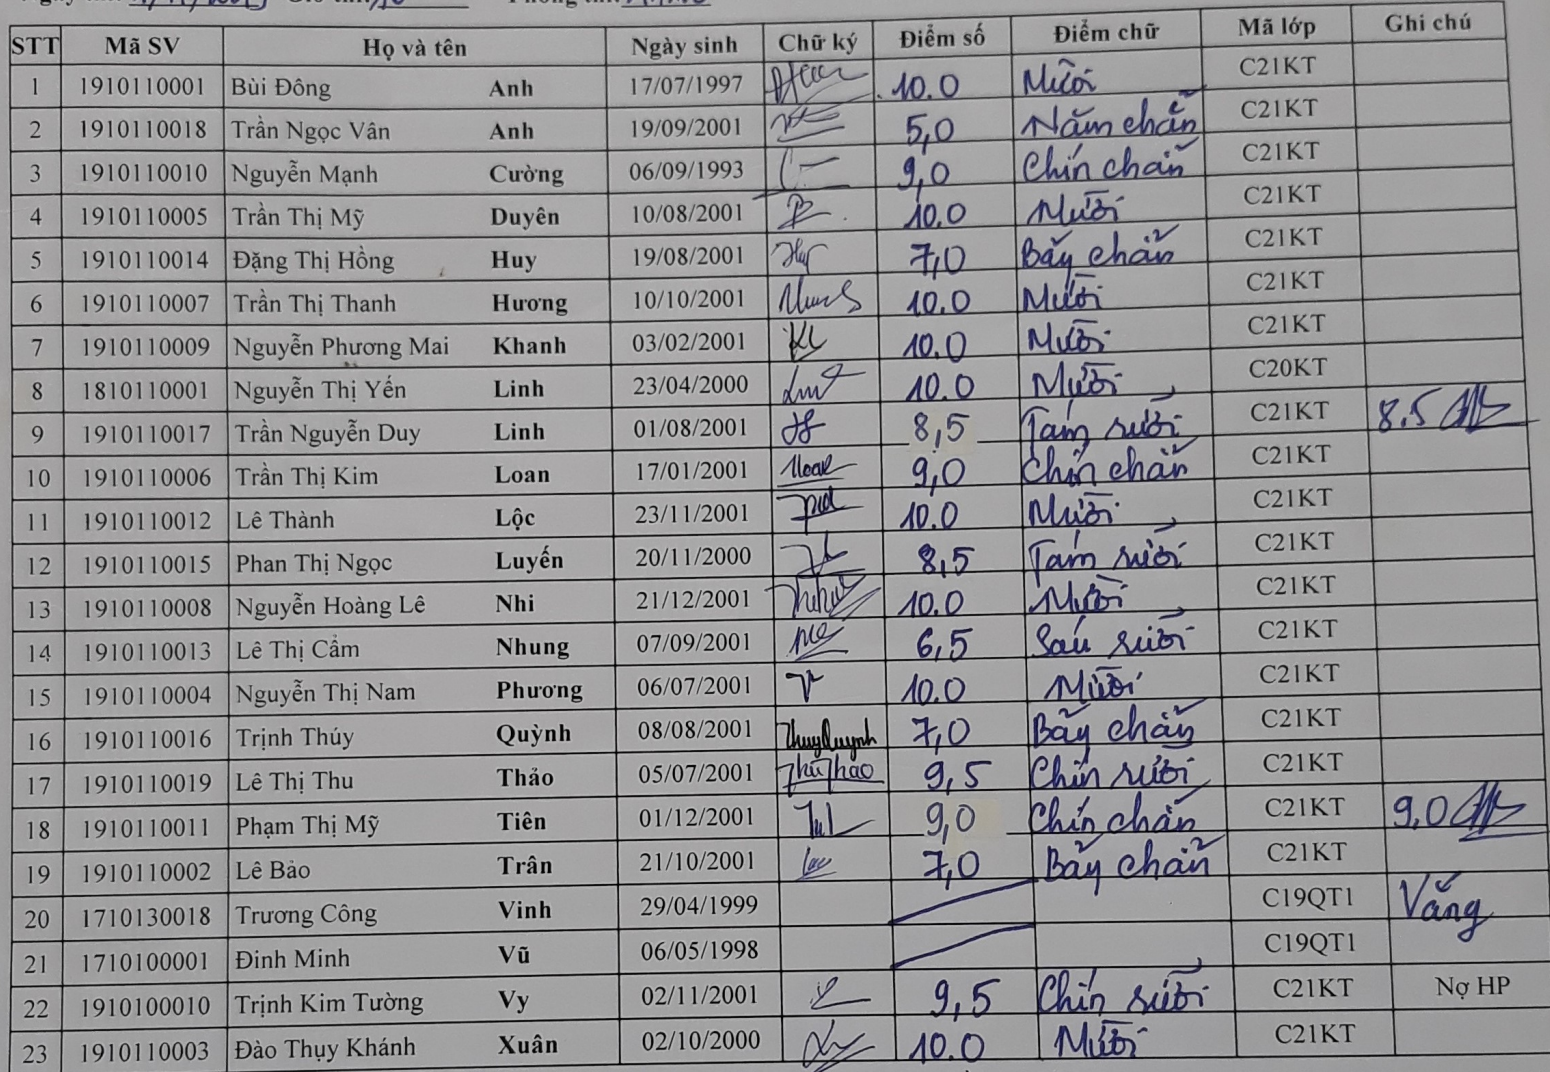 STT Mã SV Họ và tên Ngày sinh Chữ ký Điểm số Điểm chữ Mã lớp Ghi chú
1 1910110001 Bùi Đông Anh 17/07/1997 10.0 Mười C21KT
2 1910110018 Trần Ngọc Vân Anh 19/09/2001 5,0 Năm chẵn C21KT
3 1910110010 Nguyễn Mạnh Cường 06/09/1993 9,0 Chín chẵn C21KT
4 1910110005 Trần Thị Mỹ Duyên 10/08/2001 10.0 Mười C21KT
5 1910110014 Đặng Thị Hồng Huy 19/08/2001 Huy 7,0 Bảy chẵn C21KT
6 1910110007 Trần Thị Thanh Hương 10/10/2001 10.0 Mười C21KT
7 1910110009 Nguyễn Phương Mai Khanh 03/02/2001 10.0 Mười C21KT
8 1810110001 Nguyễn Thị Yến Linh 23/04/2000 10.0 Mười C20KT
9 1910110017 Trần Nguyễn Duy Linh 01/08/2001 8,5 Tám rưỡi C21KT 8.5
10 1910110006 Trần Thị Kim Loan 17/01/2001 Loan 9,0 Chín chẵn C21KT
11 1910110012 Lê Thành Lộc 23/11/2001 10.0 Mười C21KT
12 1910110015 Phan Thị Ngọc Luyến 20/11/2000 8,5 Tám rưỡi C21KT
13 1910110008 Nguyễn Hoàng Lê Nhi 21/12/2001 10.0 Mười C21KT
14 1910110013 Lê Thị Cẩm Nhung 07/09/2001 6,5 Sáu rưỡi C21KT
15 1910110004 Nguyễn Thị Nam Phương 06/07/2001 10.0 Mười C21KT
16 1910110016 Trịnh Thúy Quỳnh 08/08/2001 ThuyQuynh 7,0 Bảy chẵn C21KT
17 1910110019 Lê Thị Thu Thảo 05/07/2001 ThuThao 9,5 Chín rưỡi C21KT
18 1910110011 Phạm Thị Mỹ Tiên 01/12/2001 9,0 Chín chẵn C21KT 9,0
19 1910110002 Lê Bảo Trân 21/10/2001 7,0 Bảy chẵn C21KT
20 1710130018 Trương Công Vinh 29/04/1999 C19QT1 Vắng
21 1710100001 Đinh Minh Vũ 06/05/1998 C19QT1
22 1910100010 Trịnh Kim Tường Vy 02/11/2001 9,5 Chín rưỡi C21KT Nợ HP
23 1910110003 Đào Thụy Khánh Xuân 02/10/2000 10.0 Mười C21KT